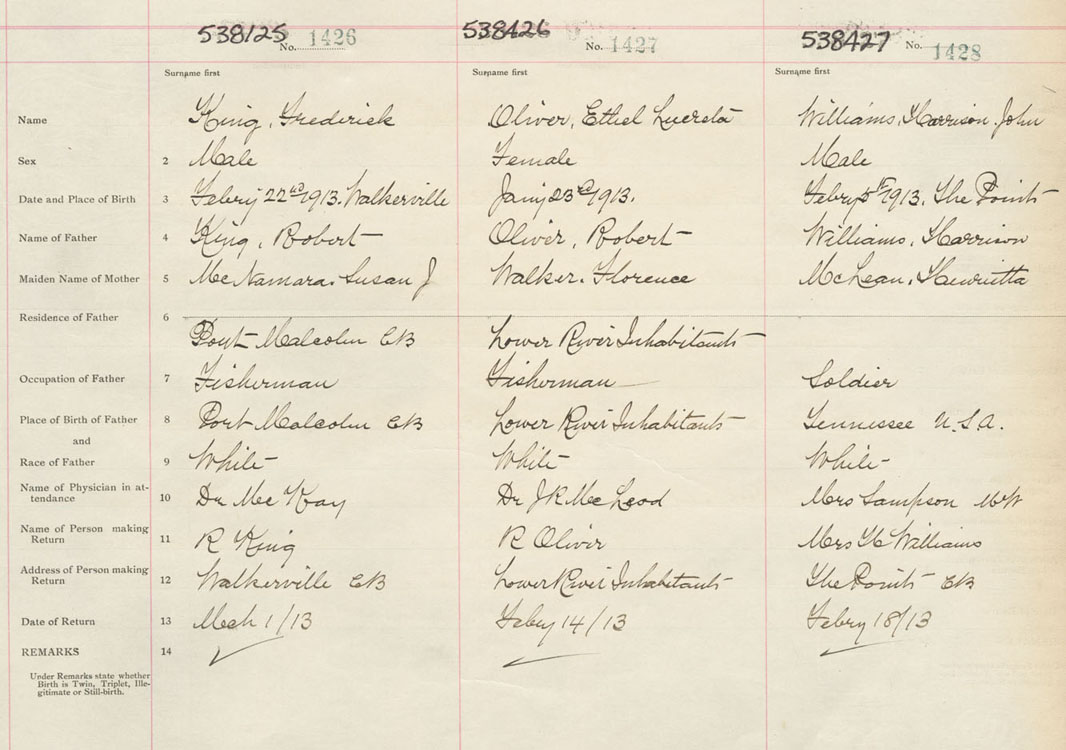 538125 No. 1426 538426 No. 1427 538427 No. 1428
Surname first Surname first Surname first
Name King, Frederick Oliver, Ethel Lucreta Williams, Harrison John
Sex 2 Male Female Male
Date and Place of Birth 3 Febry 22nd 1913. Walkerville Jany 23rd 1913. Febry 5th 1913. The Points
Name of Father 4 King, Robert Oliver, Robert Williams, Harrison
Maiden Name of Mother 5 McNamara. Susan J Walker. Florence McLean. Henrietta
Residence of Father 6
Port Malcolm CB Lower River Inhabitants
Occupation of Father 7 Fisherman Fisherman Soldier
Place of Birth of Father 8 Port Malcolm CB Lower River Inhabitants Tennessee U.S.A.
and
Race of Father 9 White White White
Name of Physician in at-
tendance 10 Dr Mc Kay Dr J R McLeod Mrs Sampson MW
Name of Person making
Return 11 R King R Oliver Mrs H Williams
Address of Person making
Return 12 Walkerville CB Lower River Inhabitants The Points CB
Date of Return 13 Mch 1/13 Feby 14/13 Febry 18/13
REMARKS 14
Under Remarks state whether
Birth is Twin, Triplet, Ille-
gitimate or Still-birth.